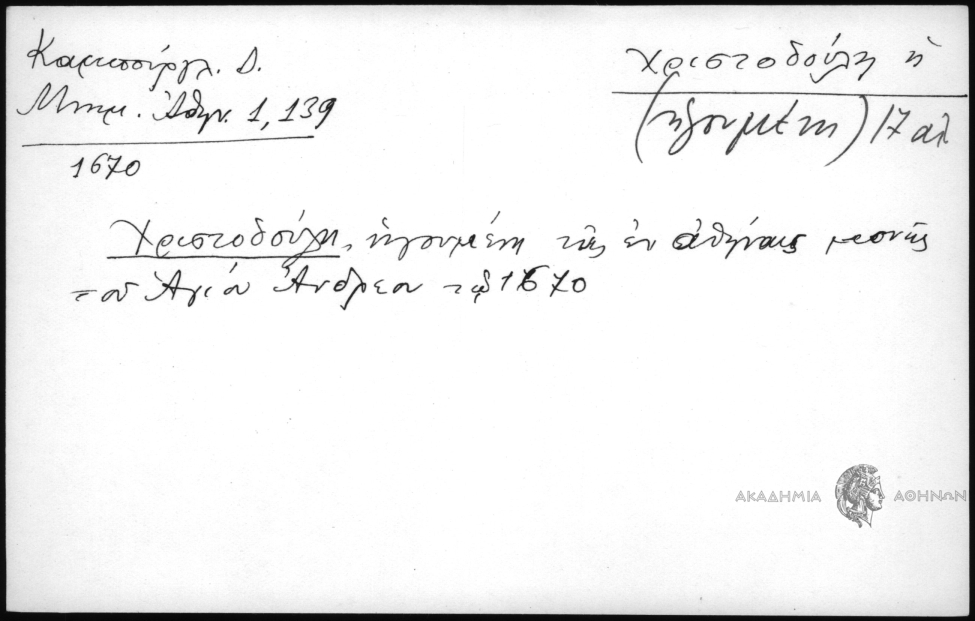 Καμπούργλ. Δ.
Μνημ. Ἀθην. 1, 139
1670
Χριστοδούλη ἡ
(ἡγουμένη) 17 αἰ
Χριστοδούλη, ἡγουμένη τῆς ἐν Ἀθήναις μονῆς
τοῦ Ἁγίου Ἀνδρέου τῷ 1670
ΑΚΑΔΗΜΙΑ ΑΘΗΝΩΝ